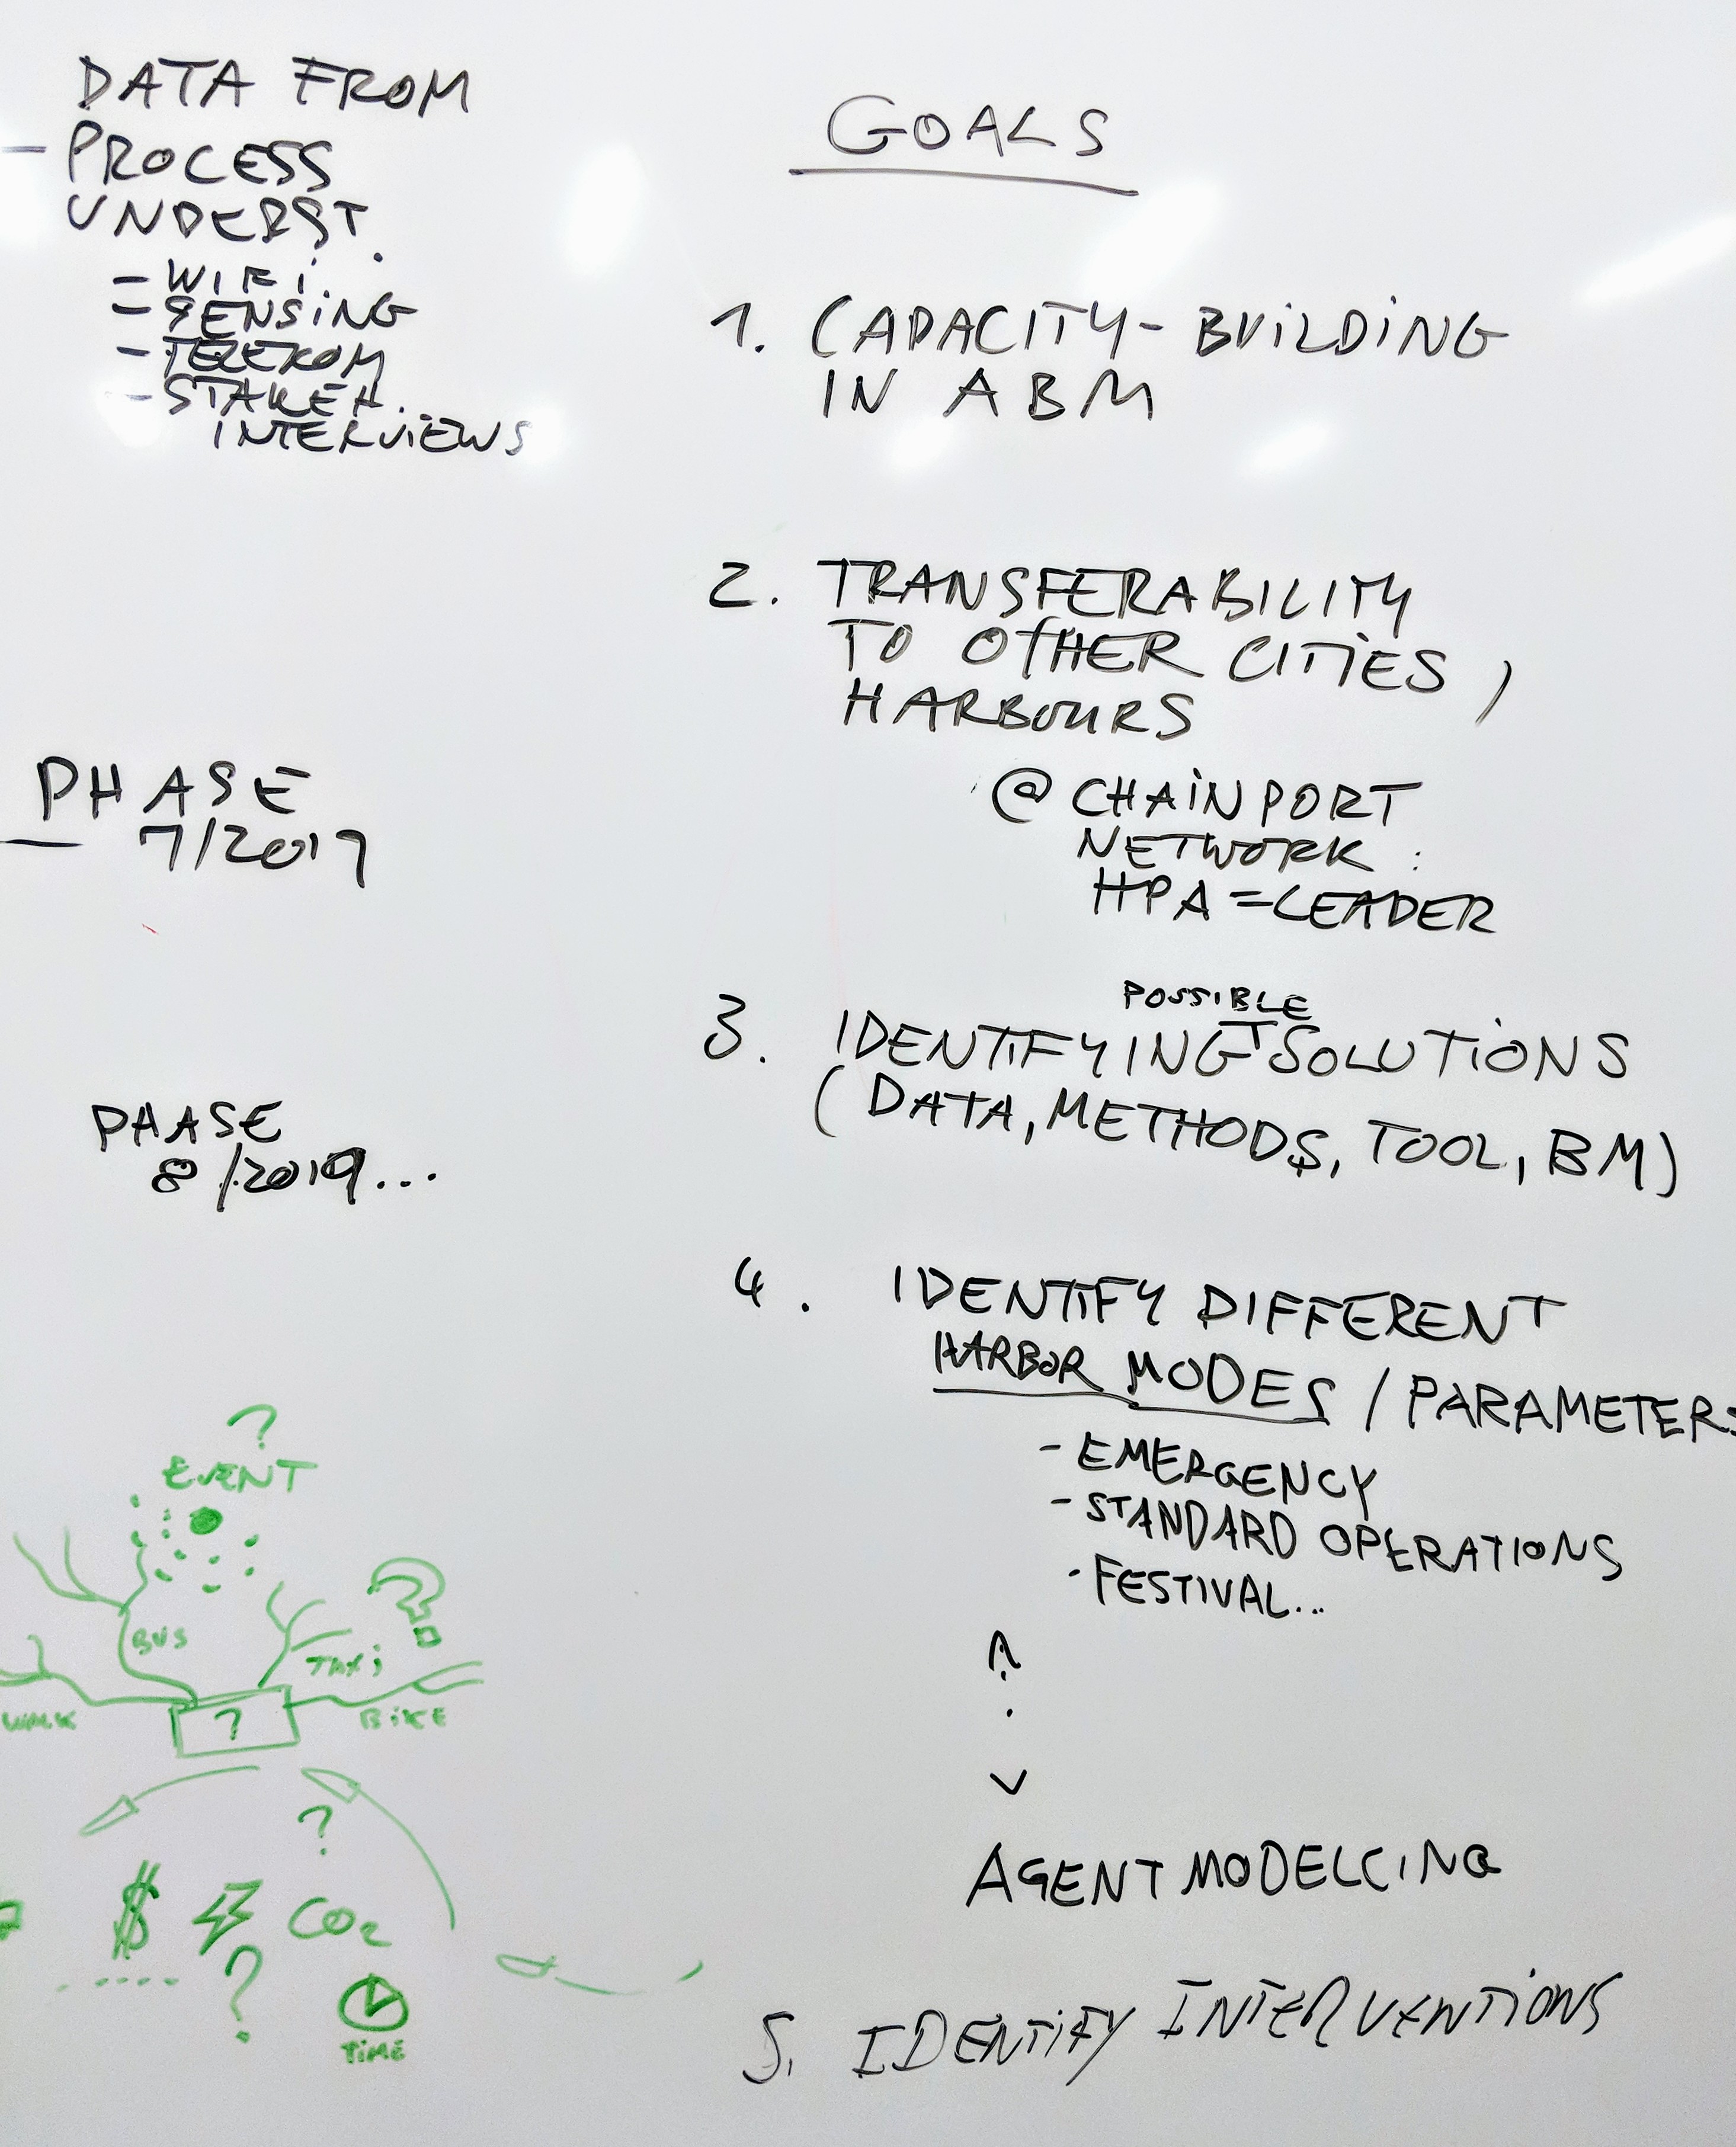 DATA FROM
- PROCESS
UNDERST.
- WIFI
- SENSING
- TELEKOM
- STAKEH.
INTERVIEWS
PHASE
7/2019
PHASE
8/2019...
?
EVENT
BUS
TAXI
?
WALK
?
BIKE
?
$
CO2
?
TIME
GOALS
1. CAPACITY-BUILDING
IN ABM
2. TRANSFERABILITY
TO OTHER CITIES,
HARBOURS
@ CHAINPORT
NETWORK:
HPA = LEADER
POSSIBLE
3. IDENTIFYING SOLUTIONS
(DATA, METHODS, TOOL, BM)
4. IDENTIFY DIFFERENT
HARBOR MODES / PARAMETERS
- EMERGENCY
- STANDARD OPERATIONS
- FESTIVAL...
AGENT MODELLING
5. IDENTIFY INTERVENTIONS